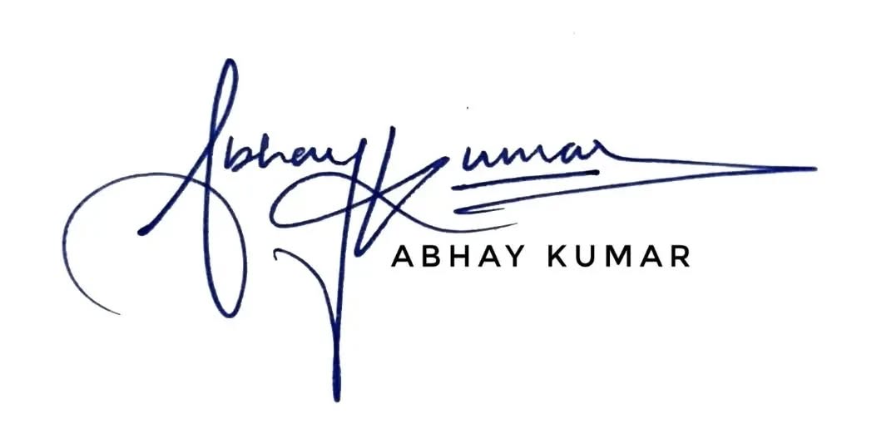 Abhay Kumar
ABHAY KUMAR